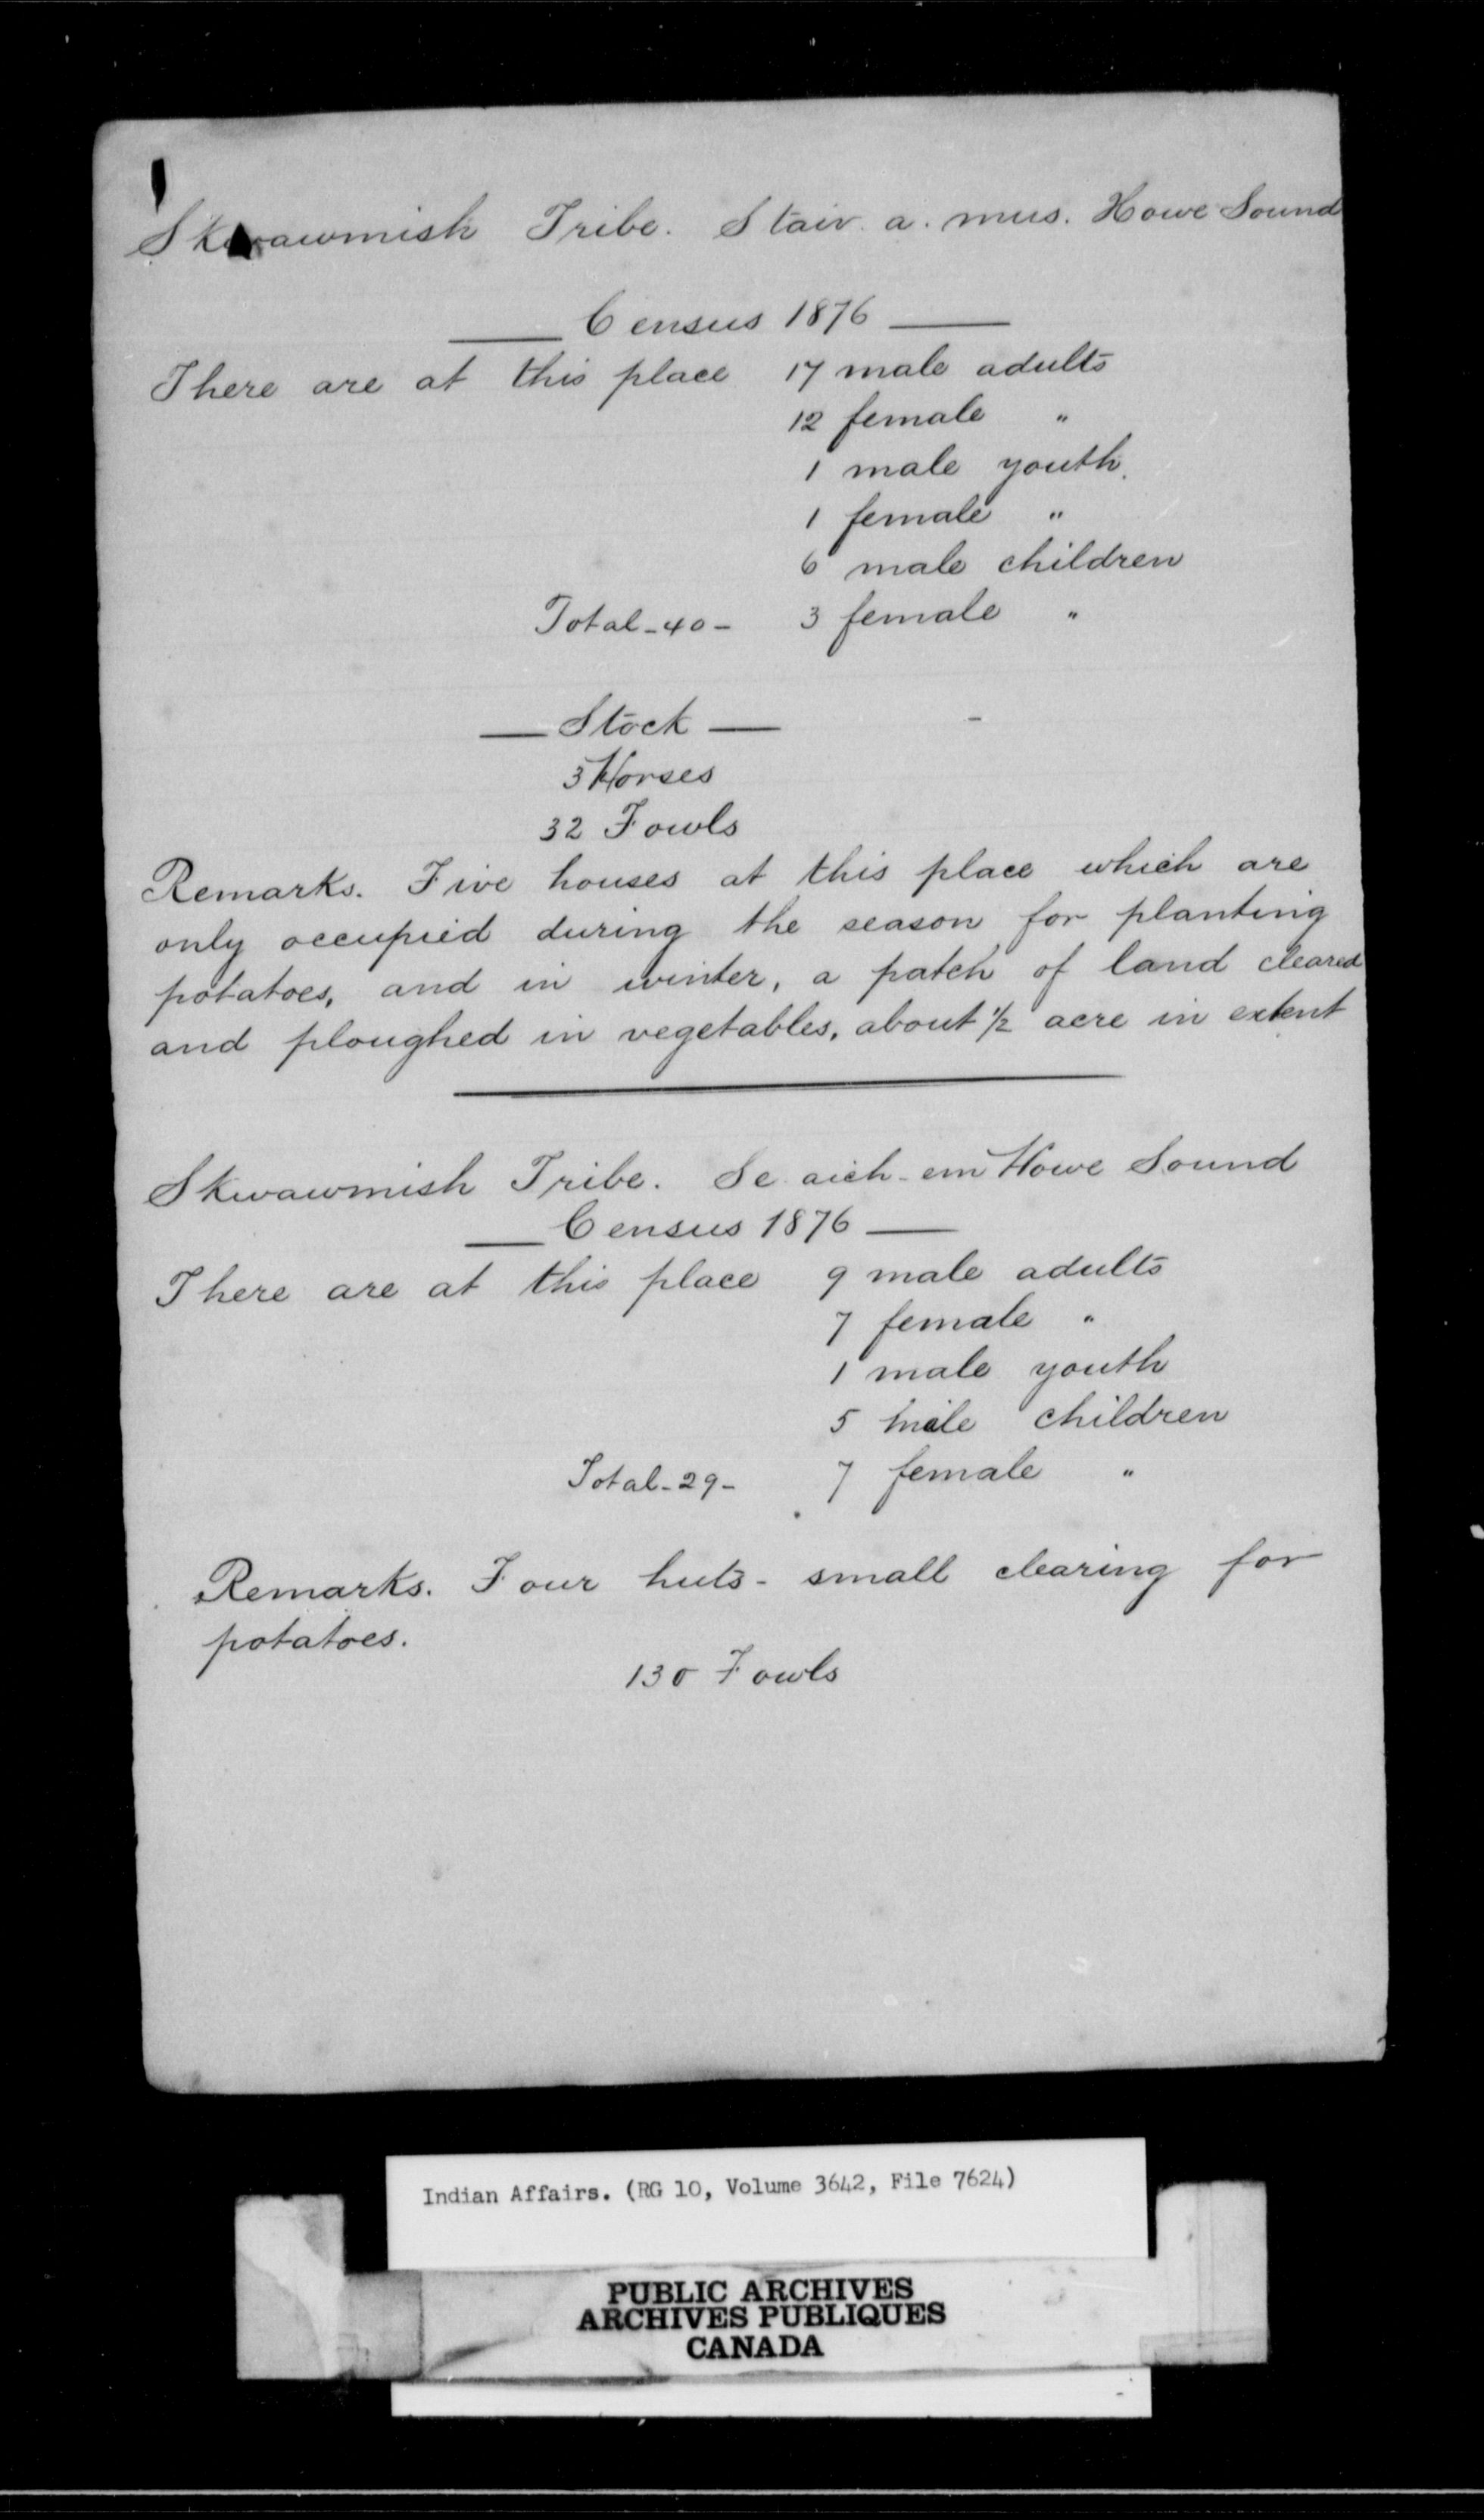 Skwawmish Tribe. Staiv. a. mus. Howe Sound
Census 1876
There are at this place 17 male adults
12 female "
1 male youth.
1 female "
6 male children
Total - 40 - 3 female "
Stock
3 Horses
32 Fowls
Remarks. Five houses at this place which are
only occupied during the season for planting
potatoes, and in winter, a patch of land cleared
and ploughed in vegetables, about 1/2 acre in extent
Skwawmish Tribe. Se aich-em Howe Sound
Census 1876
There are at this place 9 male adults
7 female "
1 male youth
5 male children
Total - 29 - 7 female "
Remarks. Four huts - small clearing for
potatoes.
130 Fowls
Indian Affairs. (RG 10, Volume 3642, File 7624)
PUBLIC ARCHIVES
ARCHIVES PUBLIQUES
CANADA